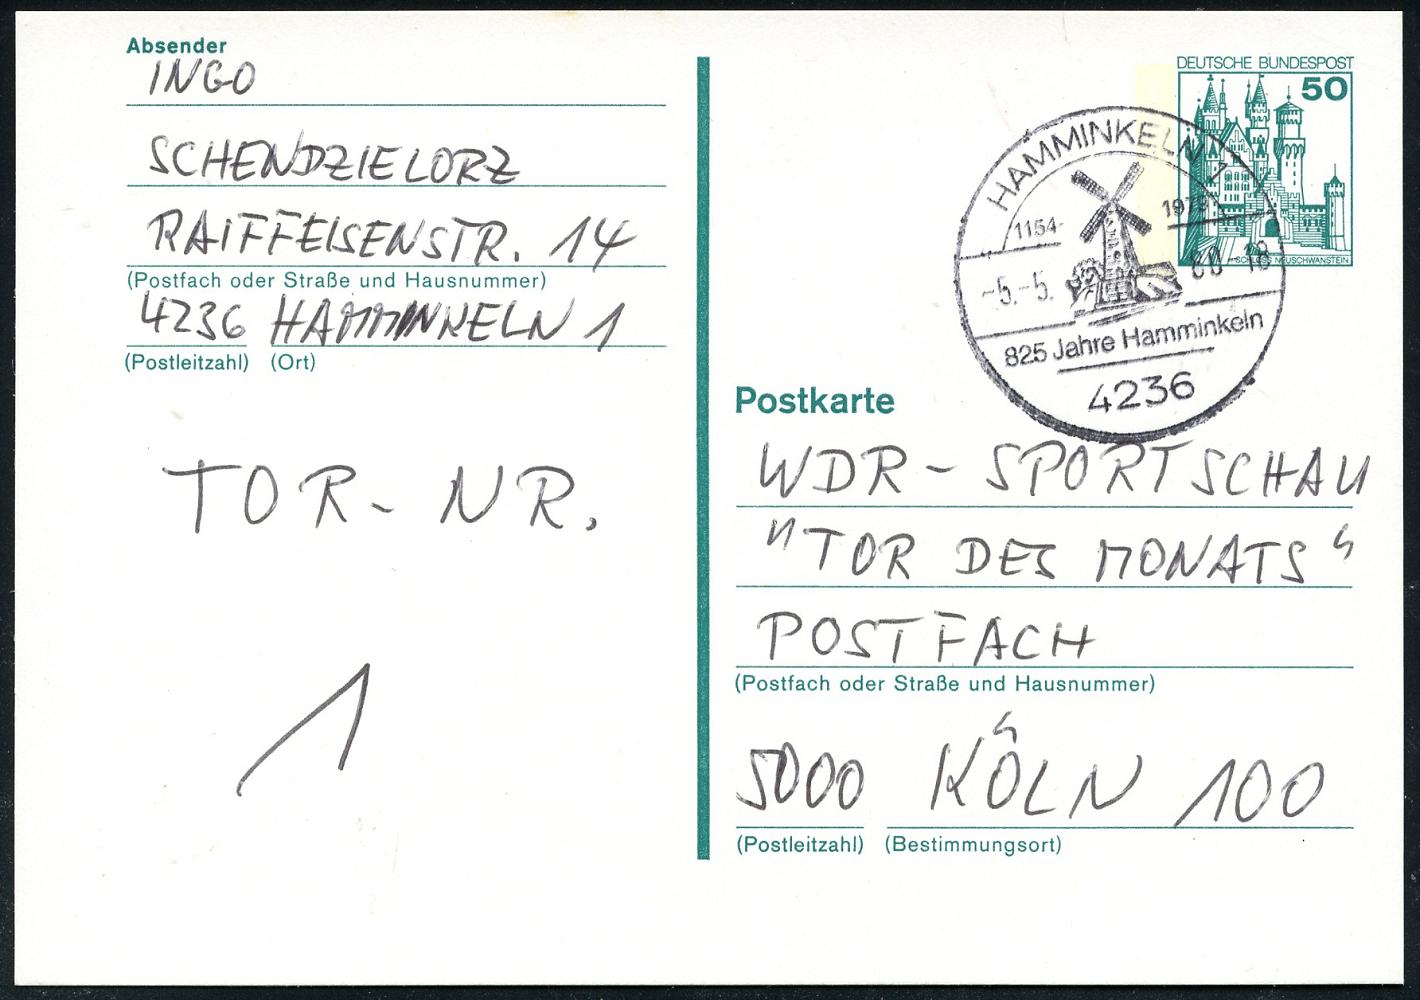 Absender
INGO
SCHENDZIELORZ
RAIFFEISENSTR. 14
(Postfach oder Straße und Hausnummer)
4236 HAMMINKELN 1
(Postleitzahl) (Ort)
TOR-NR.
1
DEUTSCHE BUNDESPOST
50
SCHLOSS NEUSCHWANSTEIN
HAMMINKELN 1
1154-1979
-5.-5. 80-18
825 Jahre Hamminkeln
4236
Postkarte
WDR-SPORTSCHAU
"TOR DES MONATS"
POSTFACH
(Postfach oder Straße und Hausnummer)
5000 KÖLN 100
(Postleitzahl) (Bestimmungsort)